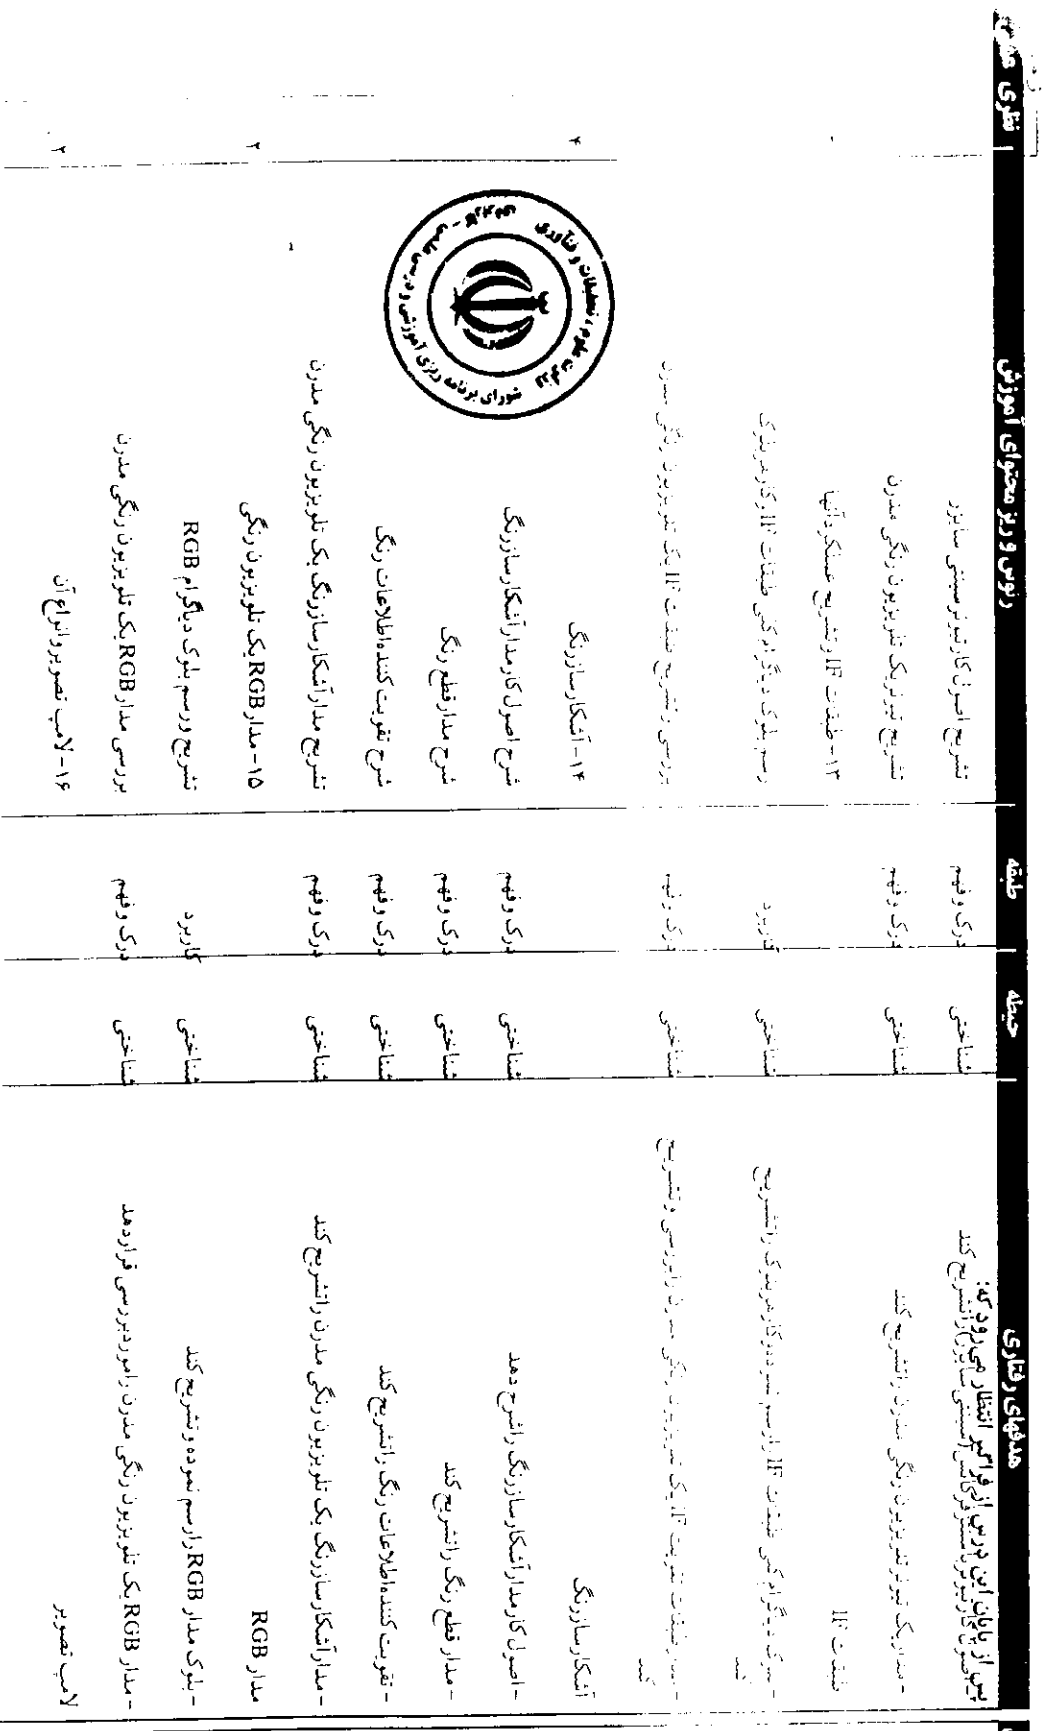 هدفهای رفتاری حیطه طبقه رئوس و ریز محتوای آموزش نظری
پس از پایان این درس از فراگیر انتظار می رود که:
شناختی درک و فهم تشریح اصول کار تیونر سینتی سایزر
- مدار یک تیونر تلویزیون رنگی مدرن را تشریح کند شناختی درک و فهم تشریح تیونر یک تلویزیون رنگی مدرن
طبقات IF ۱۳- طبقات IF و تشریح عملکرد آنها
شناختی کاربرد رسم بلوک دیاگرام کلی طبقات IF و کار هر بلوک
کند
شناختی درک و فهم بررسی و تشریح طبقات IF یک تلویزیون رنگی مدرن
کند
آشکارساز رنگ ۱۴- آشکارساز رنگ ۴
- اصول کار مدار آشکارساز رنگ را شرح دهد شناختی درک و فهم شرح اصول کار مدار آشکارساز رنگ
- مدار قطع رنگ را تشریح کند شناختی درک و فهم شرح مدار قطع رنگ
- تقویت کننده اطلاعات رنگ را تشریح کند شناختی درک و فهم شرح تقویت کننده اطلاعات رنگ
- مدار آشکارساز رنگ یک تلویزیون رنگی مدرن را تشریح کند شناختی درک و فهم تشریح مدار آشکارساز رنگ یک تلویزیون رنگی مدرن
مدار RGB ۱۵- مدار RGB یک تلویزیون رنگی ۲
- بلوک مدار RGB را رسم نموده و تشریح کند شناختی کاربرد تشریح و رسم بلوک دیاگرام RGB
- مدار RGB یک تلویزیون رنگی مدرن را مورد بررسی قرار دهد شناختی درک و فهم بررسی مدار RGB یک تلویزیون رنگی مدرن
لامپ تصویر ۱۶- لامپ تصویر و انواع آن ۲
وزارت علوم، تحقیقات و فناوری
شورای برنامه ریزی آموزشی و درسی علمی - کاربردی